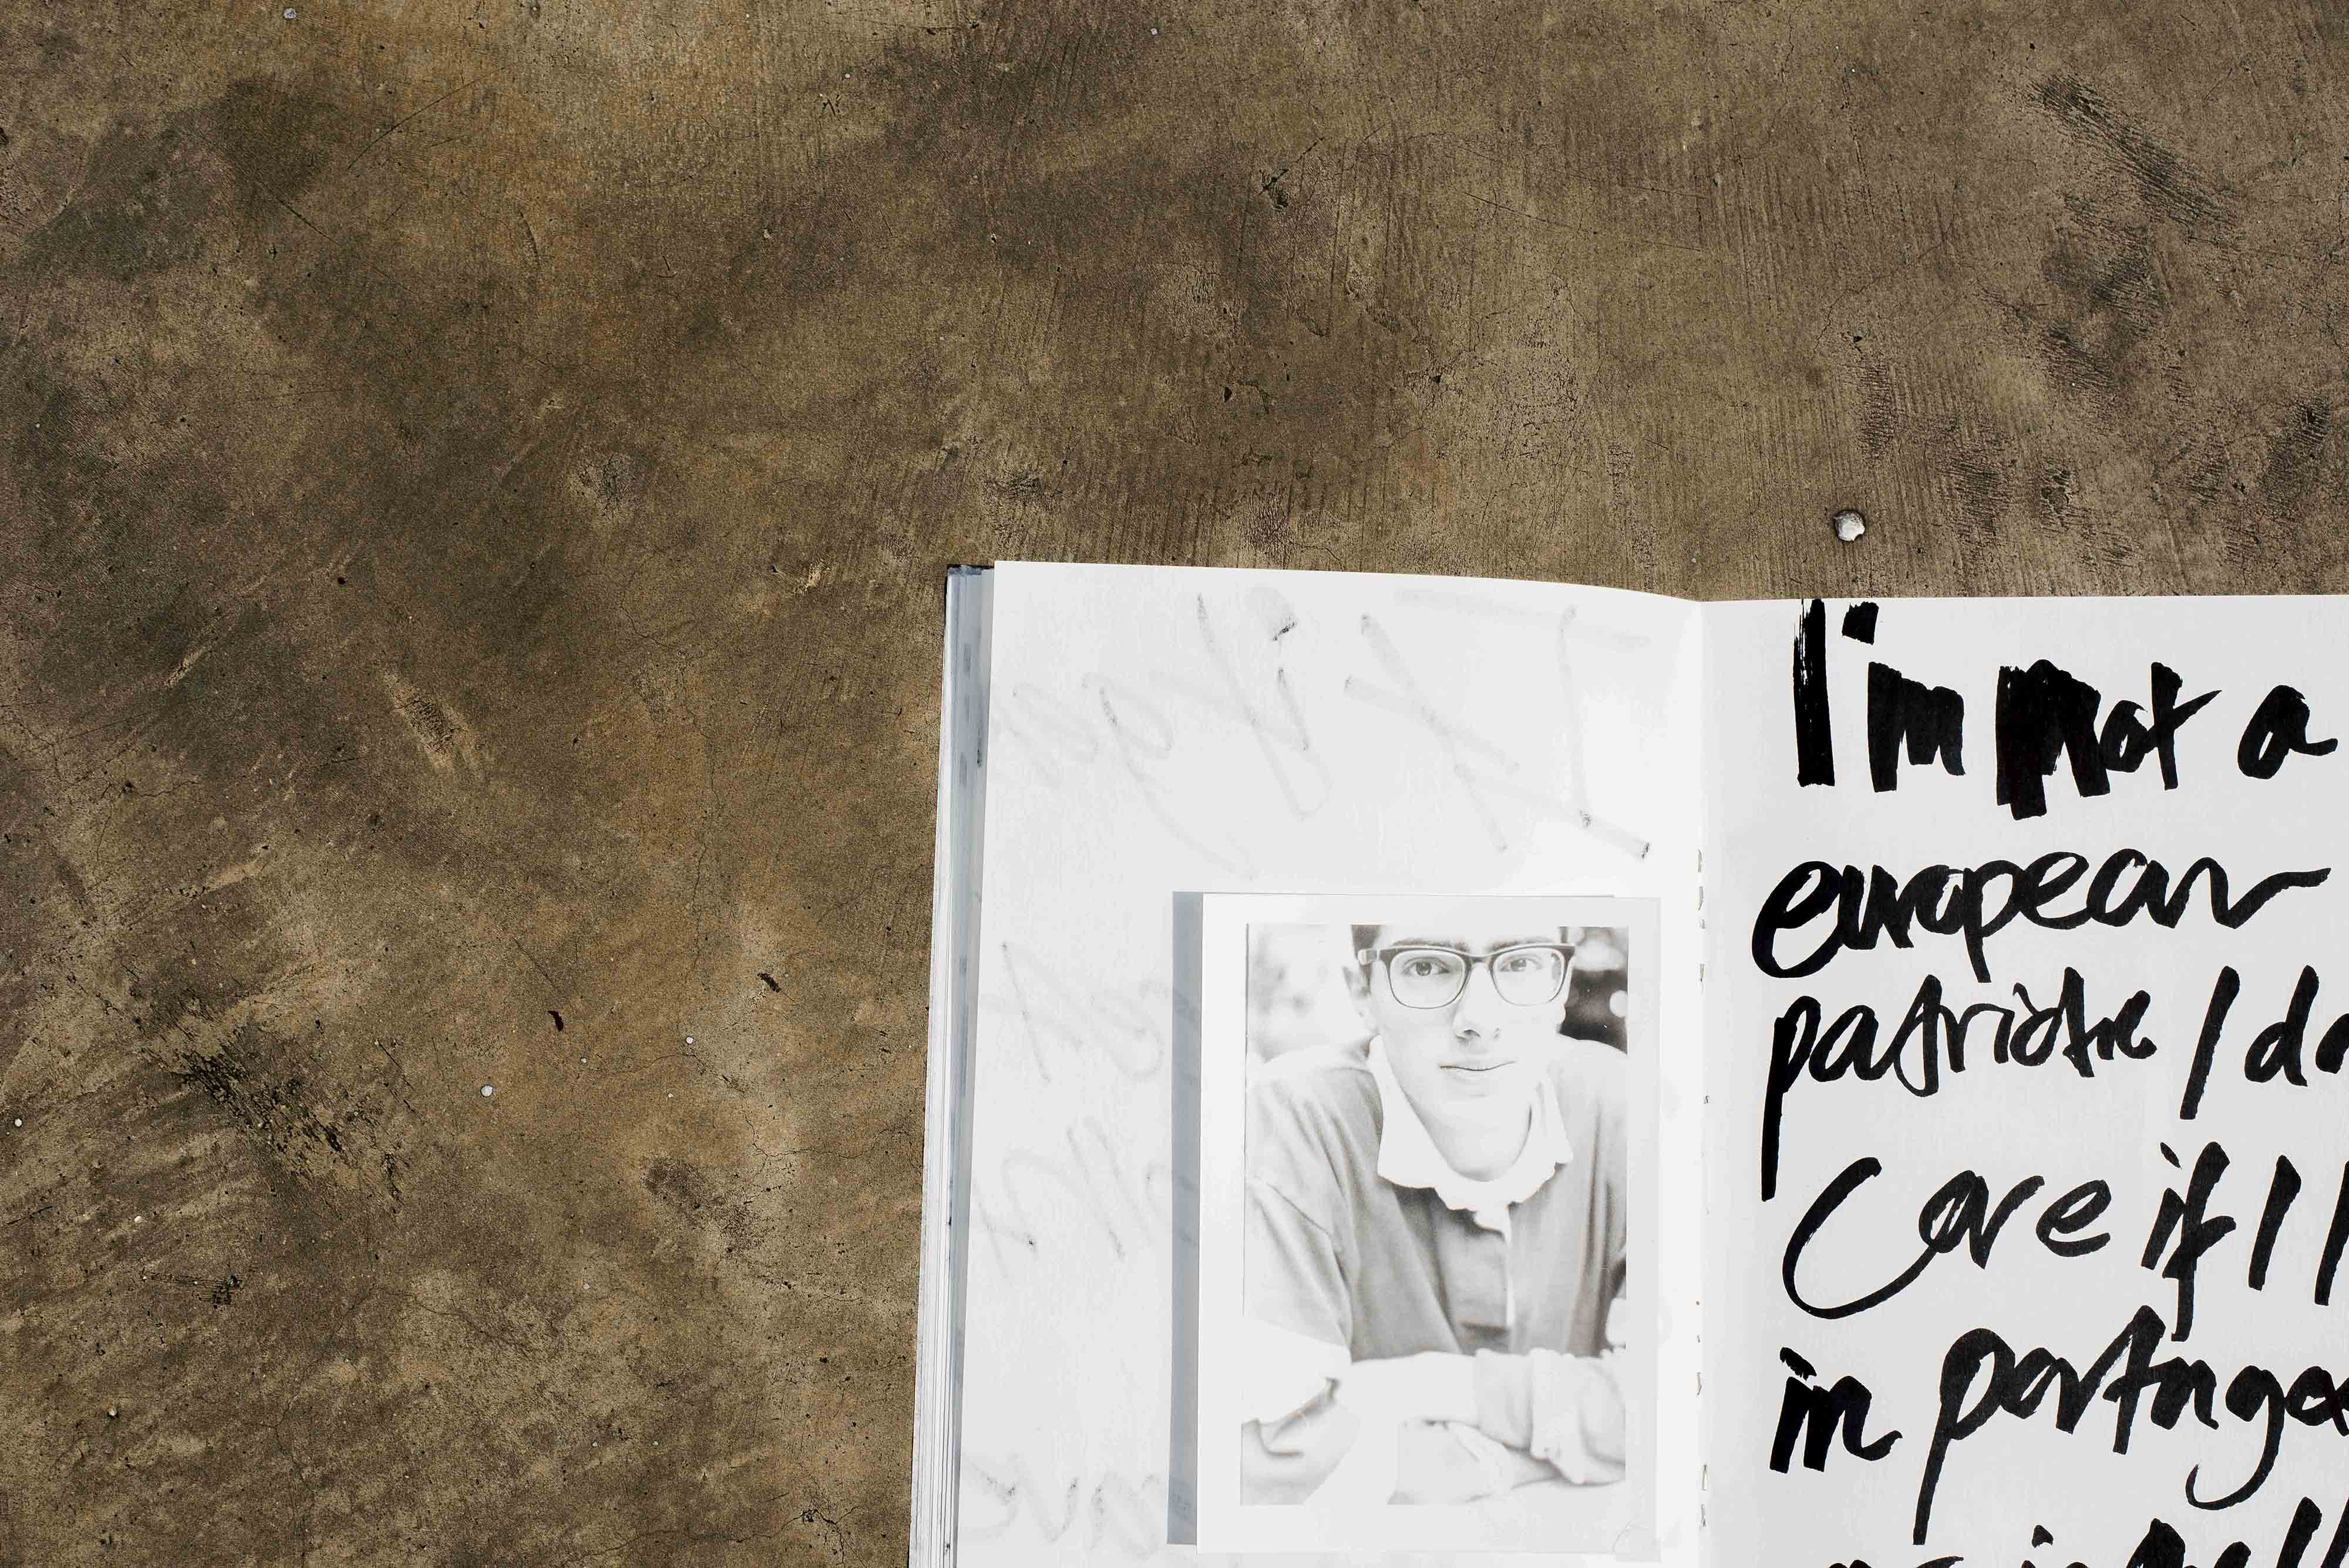 I'm not a
european
patriotic I do
Care if I
in portuga